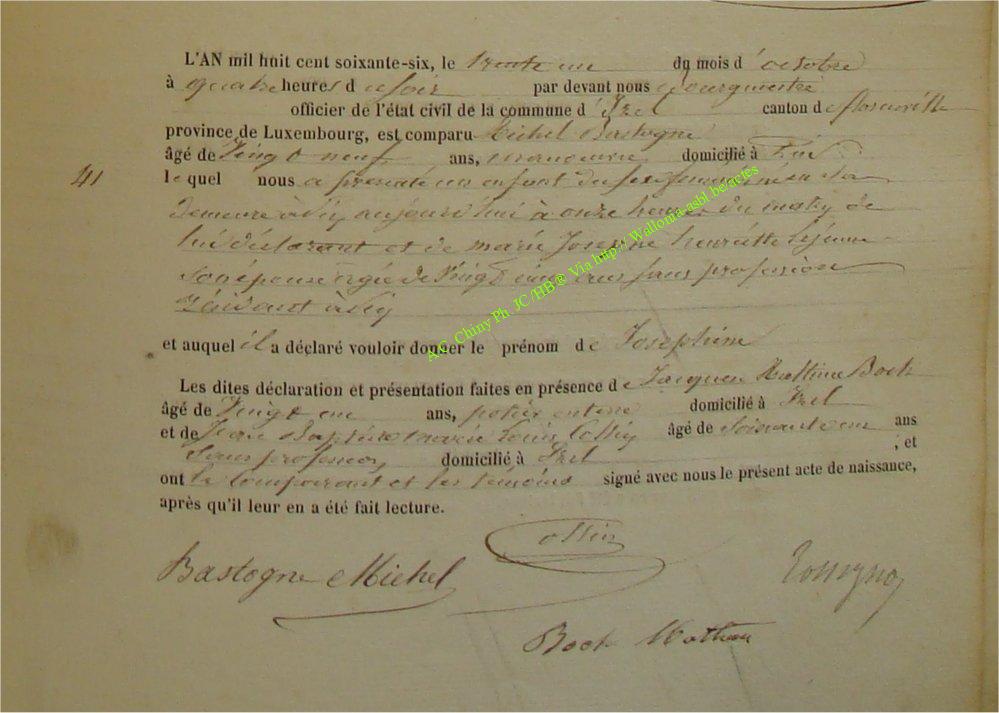 L'AN mil huit cent soixante-six, le trente un du mois d'octobre
à quatre heures du soir par devant nous Bourgmestre
officier de l'état civil de la commune d'Izel canton de florenville
province de Luxembourg, est comparu Michel Bastogne
âgé de Vingt neuf ans, manoeuvre domicilié à
41
lequel nous a présenté un enfant du sexe féminin né en sa
demeure à aujourd'hui à onze heures du matin de
lui déclarant et de marie Josephe henriette Lejeune
son épouse agée de Vingt ans sans profession
à
et auquel il a déclaré vouloir donner le prénom de Josephine
Les dites déclaration et présentation faites en présence de Jacques Boch
âgé de Vingt un ans, potier en terre domicilié à Izel
et de Jean Baptiste marie Louis Collin âgé de Soixante un ans
Sans profession domicilié à Izel ; et
ont le Comparant et les témoins signé avec nous le présent acte de naissance,
après qu'il leur en a été fait lecture.
Collin
Bastogne Michel
Boch
A.C. Chiny Ph. JC/HB @ Via http://Wallonia-asbl.be/actes